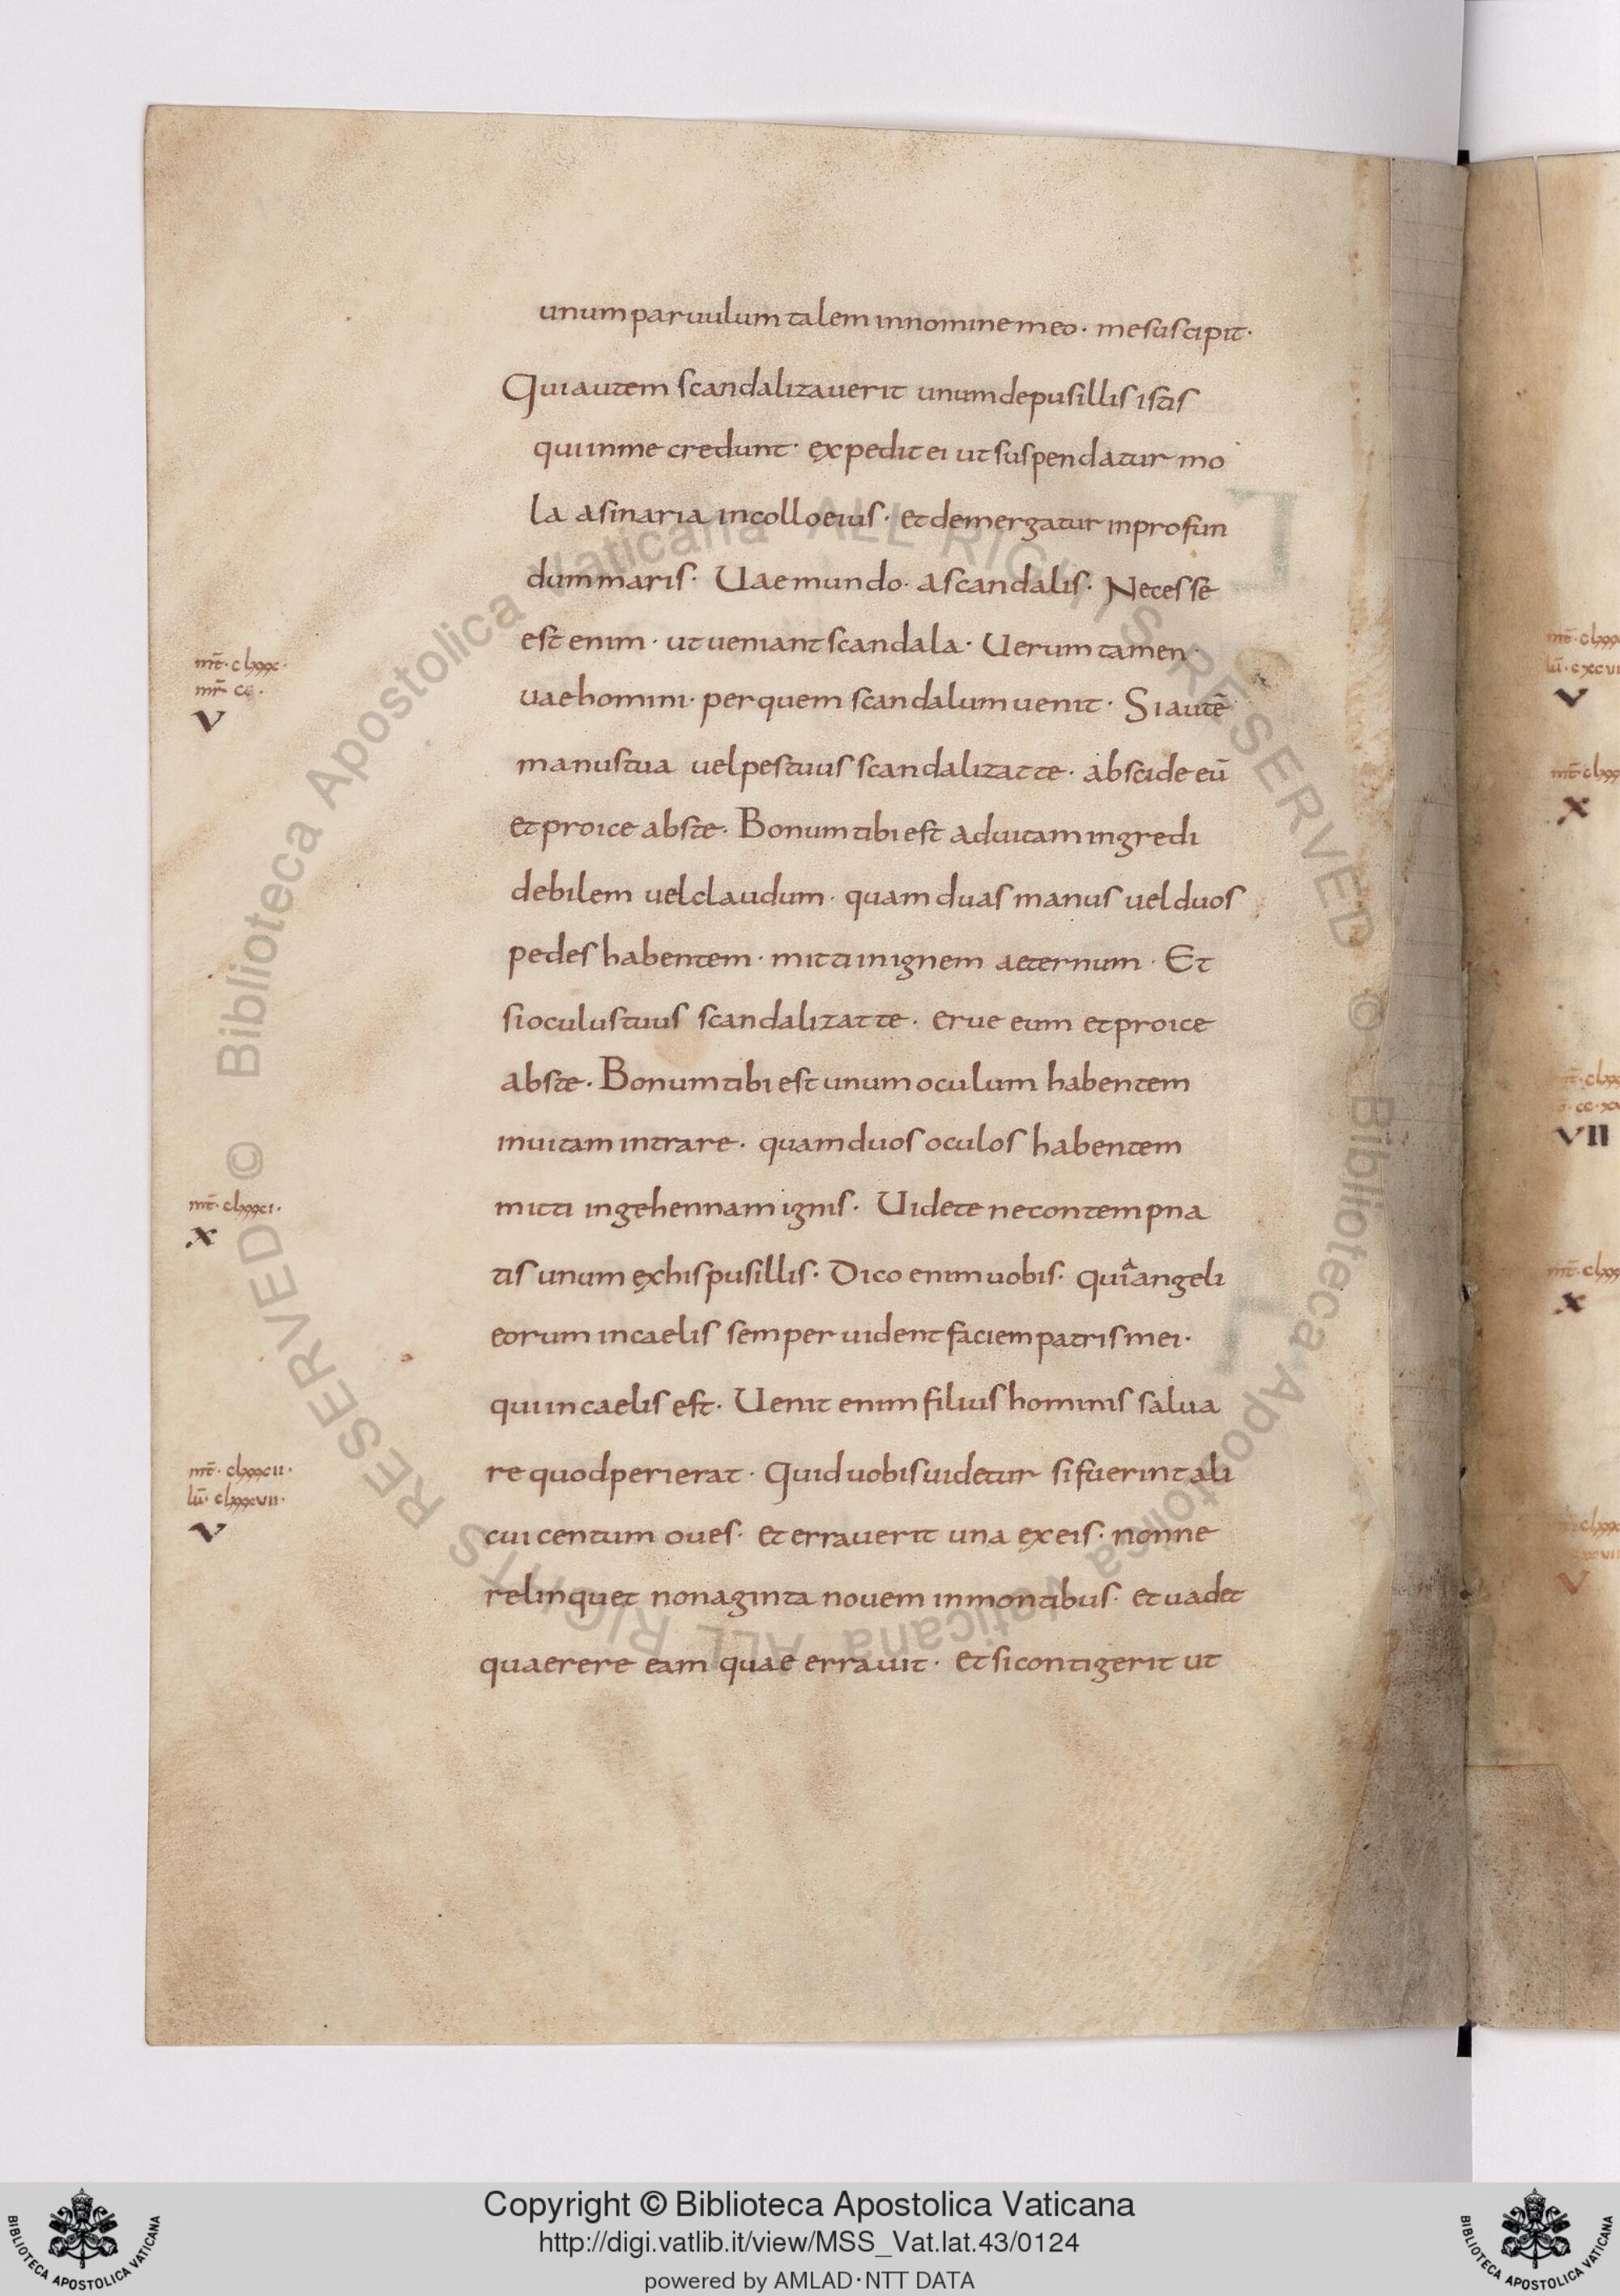 unum paruulum talem in nomine meo · me suscipit ·
Qui autem scandalizauerit unum de pusillis istis
qui in me credunt · expedit ei ut suspendatur mo
la asinaria in collo eius · et demergatur in profun
dum maris · Uae mundo · a scandalis · Necesse
est enim · ut ueniant scandala · Uerum tamen ·
mt̄ · clxxx ·
mr̄ cc ·
V
uae homini · per quem scandalum uenit · Si autē
manus tua uel pes tuus scandalizat te · abscide eū
et proice abs te · Bonum tibi est ad uitam ingredi
debilem uel claudum · quam duas manus uel duos
pedes habentem · mitti in ignem aeternum · Et
si oculus tuus scandalizat te · erue eum et proice
abs te · Bonum tibi est unum oculum habentem
in uitam intrare · quam duos oculos habentem
mt̄ · clxxxi ·
X
mitti in gehennam ignis · Uidete ne contempna
tis unum ex his pusillis · Dico enim uobis · quia angeli
eorum in caelis semper uident faciem patris mei ·
qui in caelis est · Uenit enim filius hominis salua
mt̄ · clxxxii ·
lū · clxxxvii ·
V
re quod perierat · Quid uobis uidetur si fuerint ali
cui centum oues · et errauerit una ex eis · nonne
relinquet nonaginta nouem in montibus · et uadet
quaerere eam quae errauit · et si contigerit ut
V
X
VII
X
V
© Biblioteca Apostolica Vaticana ALL RIGHTS RESERVED © Biblioteca Apostolica Vaticana ALL RIGHTS RESERVED
Copyright © Biblioteca Apostolica Vaticana
http://digi.vatlib.it/view/MSS_Vat.lat.43/0124
powered by AMLAD·NTT DATA
BIBLIOTECA APOSTOLICA VATICANA
BIBLIOTECA APOSTOLICA VATICANA